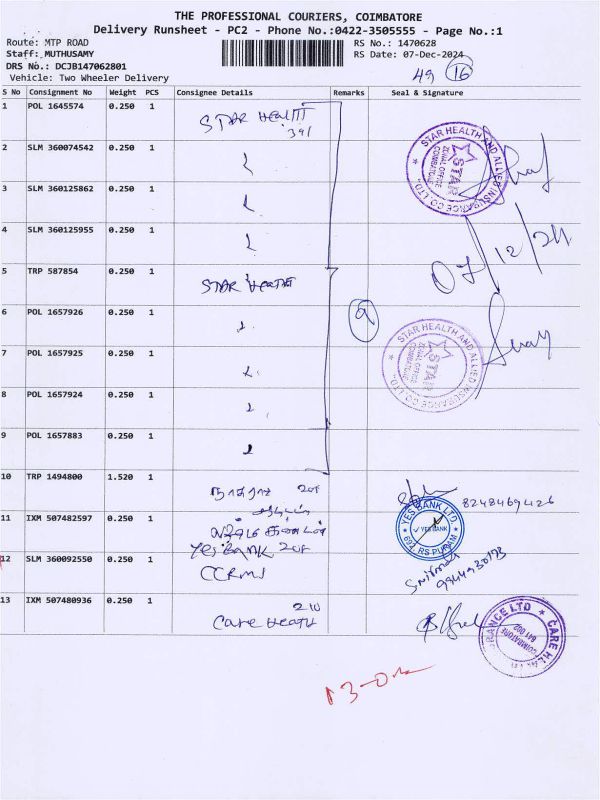 THE PROFESSIONAL COURIERS, COIMBATORE
Delivery Runsheet - PC2 - Phone No.:0422-3505555 - Page No.:1
Route: MTP ROAD
RS No.: 1470628
Staff: MUTHUSAMY
RS Date: 07-Dec-2024
DRS No.: DCJB147062801
49 16
Vehicle: Two Wheeler Delivery
S No Consignment No Weight PCS Consignee Details Remarks Seal & Signature
1 POL 1645574 0.250 1 STAR Health
391
2 SLM 360074542 0.250 1
STAR HEALTH AND ALLIED INSURANCE CO LTD.
ZONAL OFFICE
COIMBATORE
STAR
3 SLM 360125862 0.250 1
4 SLM 360125955 0.250 1
07/12/24
5 TRP 587854 0.250 1 STAR Health
6 POL 1657926 0.250 1
9
7 POL 1657925 0.250 1
STAR HEALTH AND ALLIED INSURANCE CO LTD.
ZONAL OFFICE
COIMBATORE
STAR
8 POL 1657924 0.250 1
9 POL 1657883 0.250 1
10 TRP 1494800 1.520 1
8248469426
11 IXM 507482597 0.250 1
YES BANK LTD.
YES BANK
RS PURAM
Yes BANK
12 SLM 360092550 0.250 1
13 IXM 507480936 0.250 1 210
Care Heath
CARE HEALTH
COIMBATORE
641 002